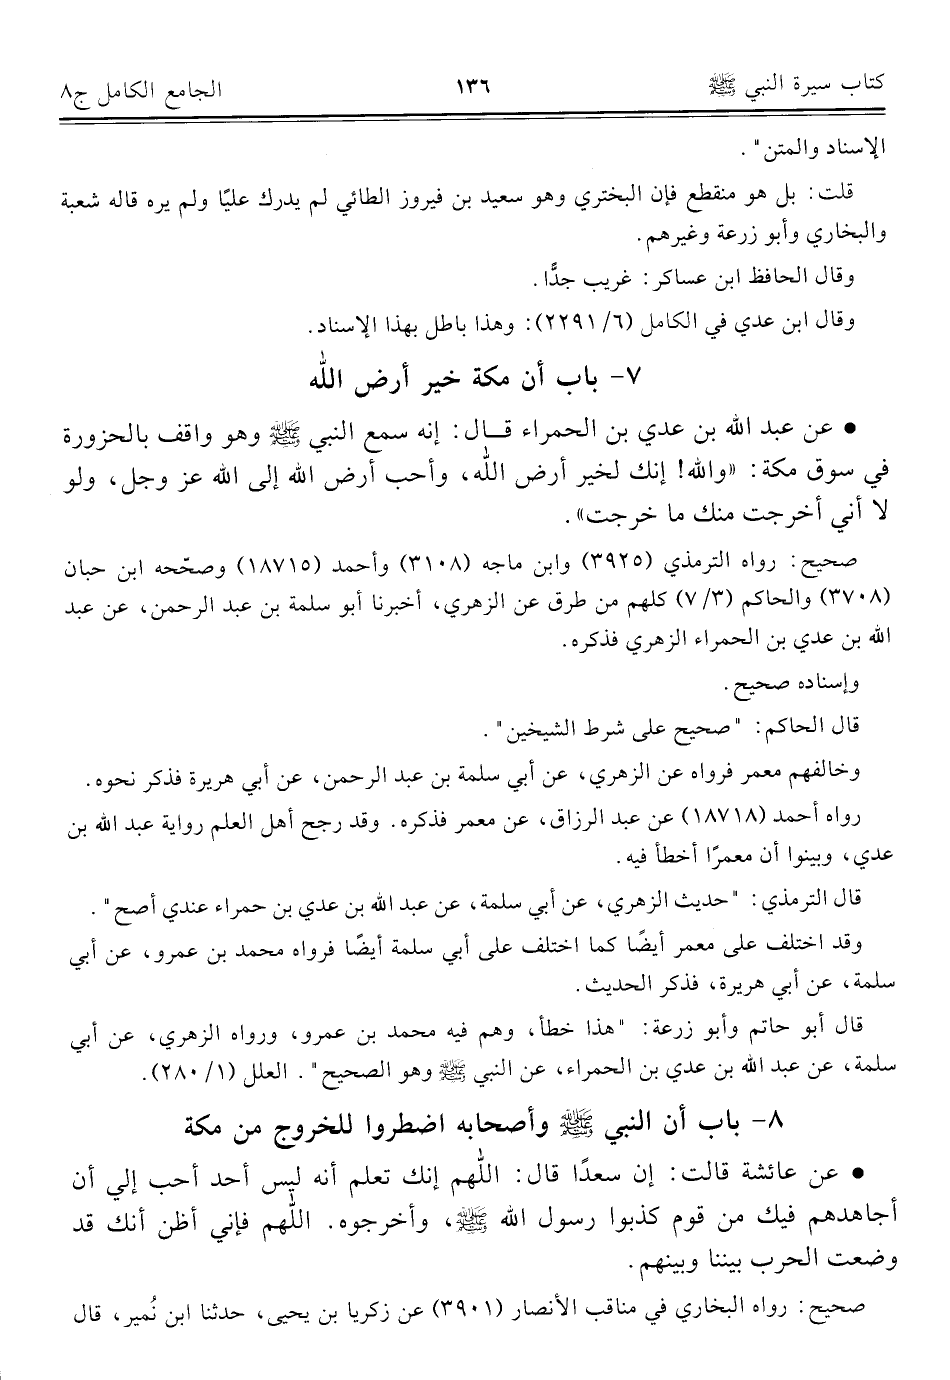 كتاب سيرة النبي ﷺ ١٣٦ الجامع الكامل ج٨
الإسناد والمتن" .
قلت: بل هو منقطع فإن البختري وهو سعيد بن فيروز الطائي لم يدرك عليًا ولم يره قاله شعبة
والبخاري وأبو زرعة وغيرهم.
وقال الحافظ ابن عساكر: غريب جدًّا.
وقال ابن عدي في الكامل (٦/ ٢٢٩١): وهذا باطل بهذا الإسناد.
٧- باب أن مكة خير أرض الله
• عن عبد الله بن عدي بن الحمراء قـال: إنه سمع النبي ﷺ وهو واقف بالحزورة
في سوق مكة: «والله! إنك لخير أرض الله، وأحب أرض الله إلى الله عز وجل، ولو
لا أني أخرجت منك ما خرجت».
صحيح: رواه الترمذي (٣٩٢٥) وابن ماجه (٣١٠٨) وأحمد (١٨٧١٥) وصحّحه ابن حبان
(٣٧٠٨) والحاكم (٣/ ٧) كلهم من طرق عن الزهري، أخبرنا أبو سلمة بن عبد الرحمن، عن عبد
الله بن عدي بن الحمراء الزهري فذكره.
وإسناده صحيح.
قال الحاكم: "صحيح على شرط الشيخين" .
وخالفهم معمر فرواه عن الزهري، عن أبي سلمة بن عبد الرحمن، عن أبي هريرة فذكر نحوه.
رواه أحمد (١٨٧١٨) عن عبد الرزاق، عن معمر فذكره. وقد رجح أهل العلم رواية عبد الله بن
عدي، وبينوا أن معمرًا أخطأ فيه.
قال الترمذي: "حديث الزهري، عن أبي سلمة، عن عبد الله بن عدي بن حمراء عندي أصح" .
وقد اختلف على معمر أيضًا كما اختلف على أبي سلمة أيضًا فرواه محمد بن عمرو، عن أبي
سلمة، عن أبي هريرة، فذكر الحديث.
قال أبو حاتم وأبو زرعة: "هذا خطأ، وهم فيه محمد بن عمرو، ورواه الزهري، عن أبي
سلمة، عن عبد الله بن عدي بن الحمراء، عن النبي ﷺ وهو الصحيح" . العلل (١/ ٢٨٠).
٨- باب أن النبي ﷺ وأصحابه اضطروا للخروج من مكة
• عن عائشة قالت: إن سعدًا قال: اللهم إنك تعلم أنه ليس أحد أحب إلي أن
أجاهدهم فيك من قوم كذبوا رسول الله ﷺ، وأخرجوه. اللهم فإني أظن أنك قد
وضعت الحرب بيننا وبينهم.
صحيح: رواه البخاري في مناقب الأنصار (٣٩٠١) عن زكريا بن يحيى، حدثنا ابن نُمير، قال